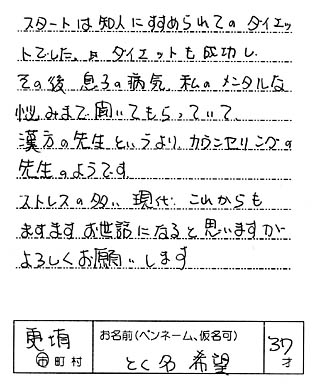 スタートは知人にすすめられてのダイエッ
トでした。 ダイエットも成功し
その後、息子の病気、私のメンタルな
悩みまで聞いてもらっていて、
漢方の先生というより、カウンセリングの
先生のようです。
ストレスの多い現代、これからも
ますますお世話になると思いますが
よろしくお願いします
更埴
市町村
お名前(ペンネーム、仮名可)
とく名希望
37
才